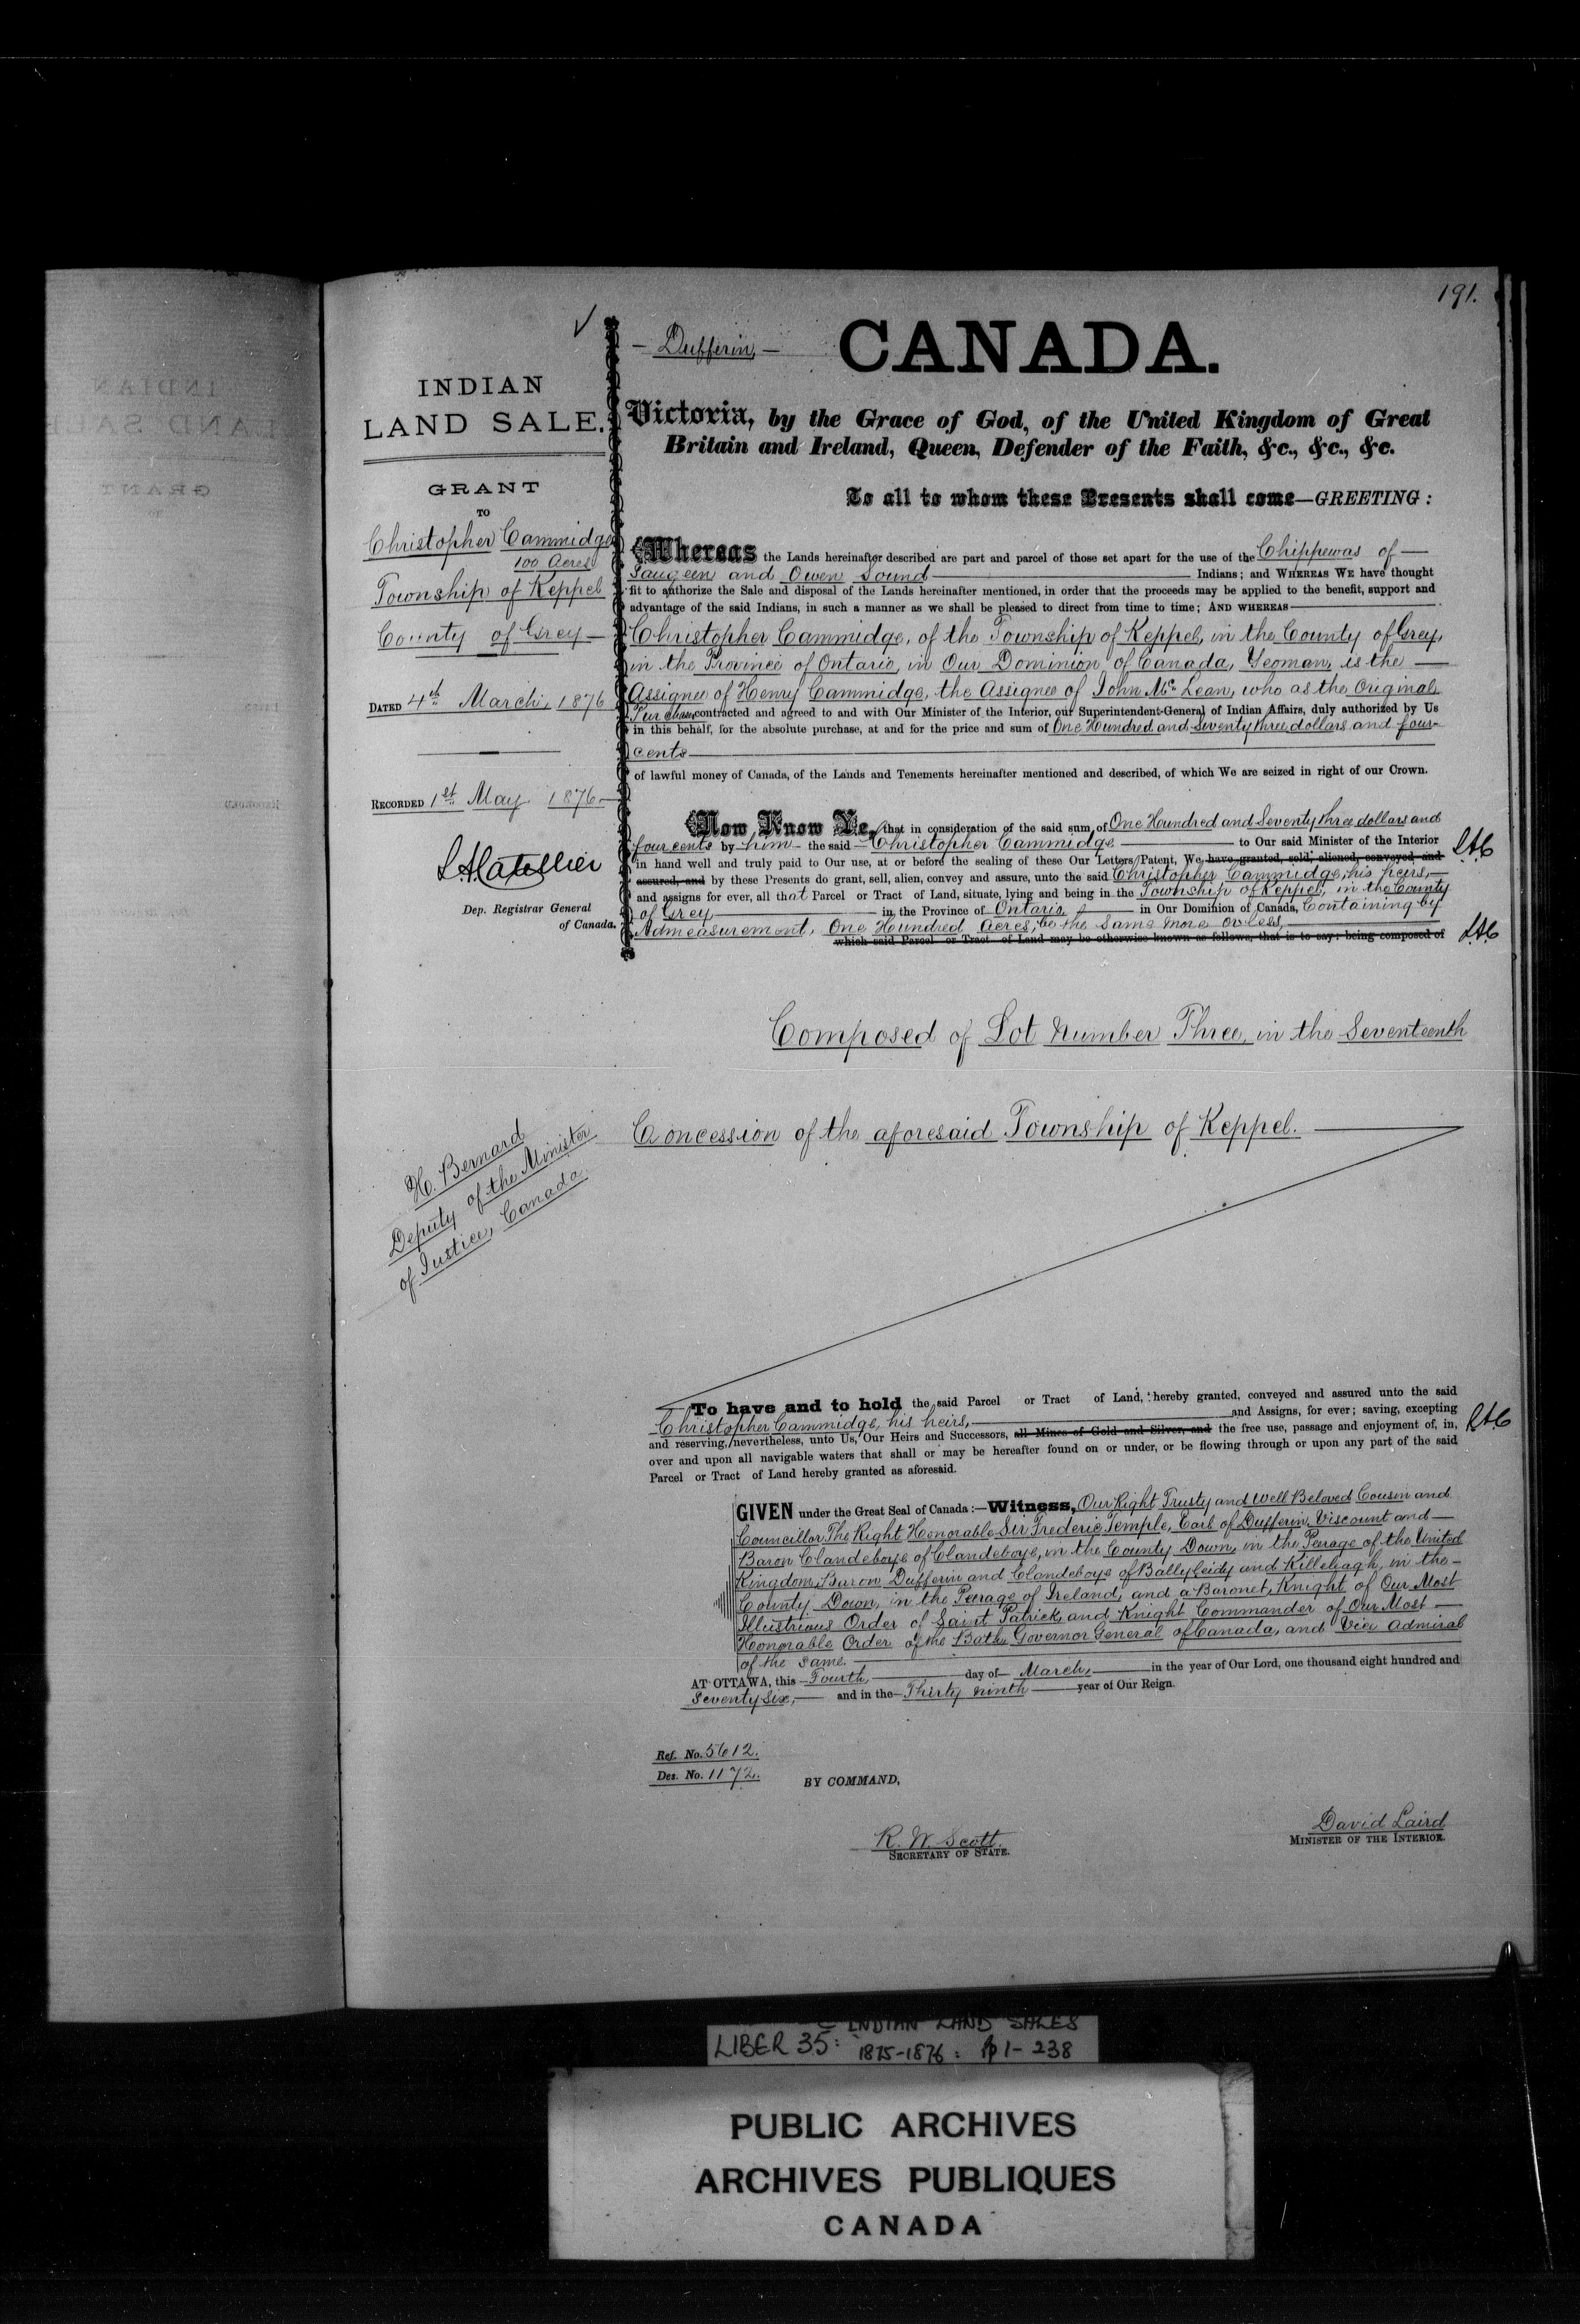 191.
- Dufferin, -
CANADA.
INDIAN
LAND SALE.
GRANT
TO
Christopher Cammidge
100 Acres
Township of Keppel
County of Grey —
DATED 4th March, 1876
RECORDED 1st May 1876 —
Dep. Registrar General
of Canada.
H. Bernard
Deputy of the Minister
of Justice, Canada
Victoria, by the Grace of God, of the United Kingdom of Great
Britain and Ireland, Queen, Defender of the Faith, &c., &c., &c.
To all to whom these Presents shall come—GREETING:
Whereas the Lands hereinafter described are part and parcel of those set apart for the use of the Chippewas of —
Saugeen and Owen Sound — Indians; and WHEREAS WE have thought
fit to authorize the Sale and disposal of the Lands hereinafter mentioned, in order that the proceeds may be applied to the benefit, support and
advantage of the said Indians, in such a manner as we shall be pleased to direct from time to time; AND WHEREAS —
Christopher Cammidge, of the Township of Keppel, in the County of Grey,
in the Province of Ontario, in Our Dominion of Canada, Yeoman, is the —
Assignee of Henry Cammidge, the Assignee of John Mc Lean, who as the Original
Purchaser contracted and agreed to and with Our Minister of the Interior, our Superintendent-General of Indian Affairs, duly authorized by Us
in this behalf, for the absolute purchase, at and for the price and sum of One Hundred and Seventy three dollars and four
cents —
of lawful money of Canada, of the Lands and Tenements hereinafter mentioned and described, of which We are seized in right of our Crown.
Now Know Ye, that in consideration of the said sum of One Hundred and Seventy three dollars and
four cents by him - the said - Christopher Cammidge — to Our said Minister of the Interior
in hand well and truly paid to Our use, at or before the sealing of these Our Letters Patent, We have granted, sold, aliened, conveyed and
assured, and by these Presents do grant, sell, alien, convey and assure, unto the said Christopher Cammidge, his heirs, —
and assigns for ever, all that Parcel or Tract of Land, situate, lying and being in the Township of Keppel, in the County
of Grey, — in the Province of Ontario — in Our Dominion of Canada, Containing by
Admeasurement, One Hundred Acres, be the Same more or less, —
which said Parcel or Tract of Land may be otherwise known as follows, that is to say: being composed of
Composed of Lot Number Three, in the Seventeenth
Concession of the aforesaid Township of Keppel. —
To have and to hold the said Parcel or Tract of Land, hereby granted, conveyed and assured unto the said
Christopher Cammidge, his heirs, — and Assigns, for ever; saving, excepting
and reserving, nevertheless, unto Us, Our Heirs and Successors, all Mines of Gold and Silver, and the free use, passage and enjoyment of, in,
over and upon all navigable waters that shall or may be hereafter found on or under, or be flowing through or upon any part of the said
Parcel or Tract of Land hereby granted as aforesaid.
GIVEN under the Great Seal of Canada:—Witness, Our Right Trusty and Well Beloved Cousin and
Councillor The Right Honorable Sir Frederic Temple, Earl of Dufferin, Viscount and —
Baron Clandeboye of Clandeboye, in the County Down, in the Peerage of the United
Kingdom, Baron Dufferin and Clandeboye of Ballyleidy and Killeleagh, in the —
County Down, in the Peerage of Ireland, and a Baronet, Knight of Our Most
Illustrious Order of Saint Patrick, and Knight Commander of Our Most —
Honorable Order of the Bath, Governor General of Canada, and Vice Admiral
of the same. —
AT OTTAWA, this - Fourth, — day of - March, — in the year of Our Lord, one thousand eight hundred and
Seventy Six, — and in the - Thirty ninth — year of Our Reign.
Ref. No. 5612.
Des. No. 1172.
BY COMMAND,
R. W. Scott.
SECRETARY OF STATE.
David Laird
MINISTER OF THE INTERIOR.
INDIAN LAND SALES
LIBER 35: 1875-1876: pp 1-238
PUBLIC ARCHIVES
ARCHIVES PUBLIQUES
CANADA